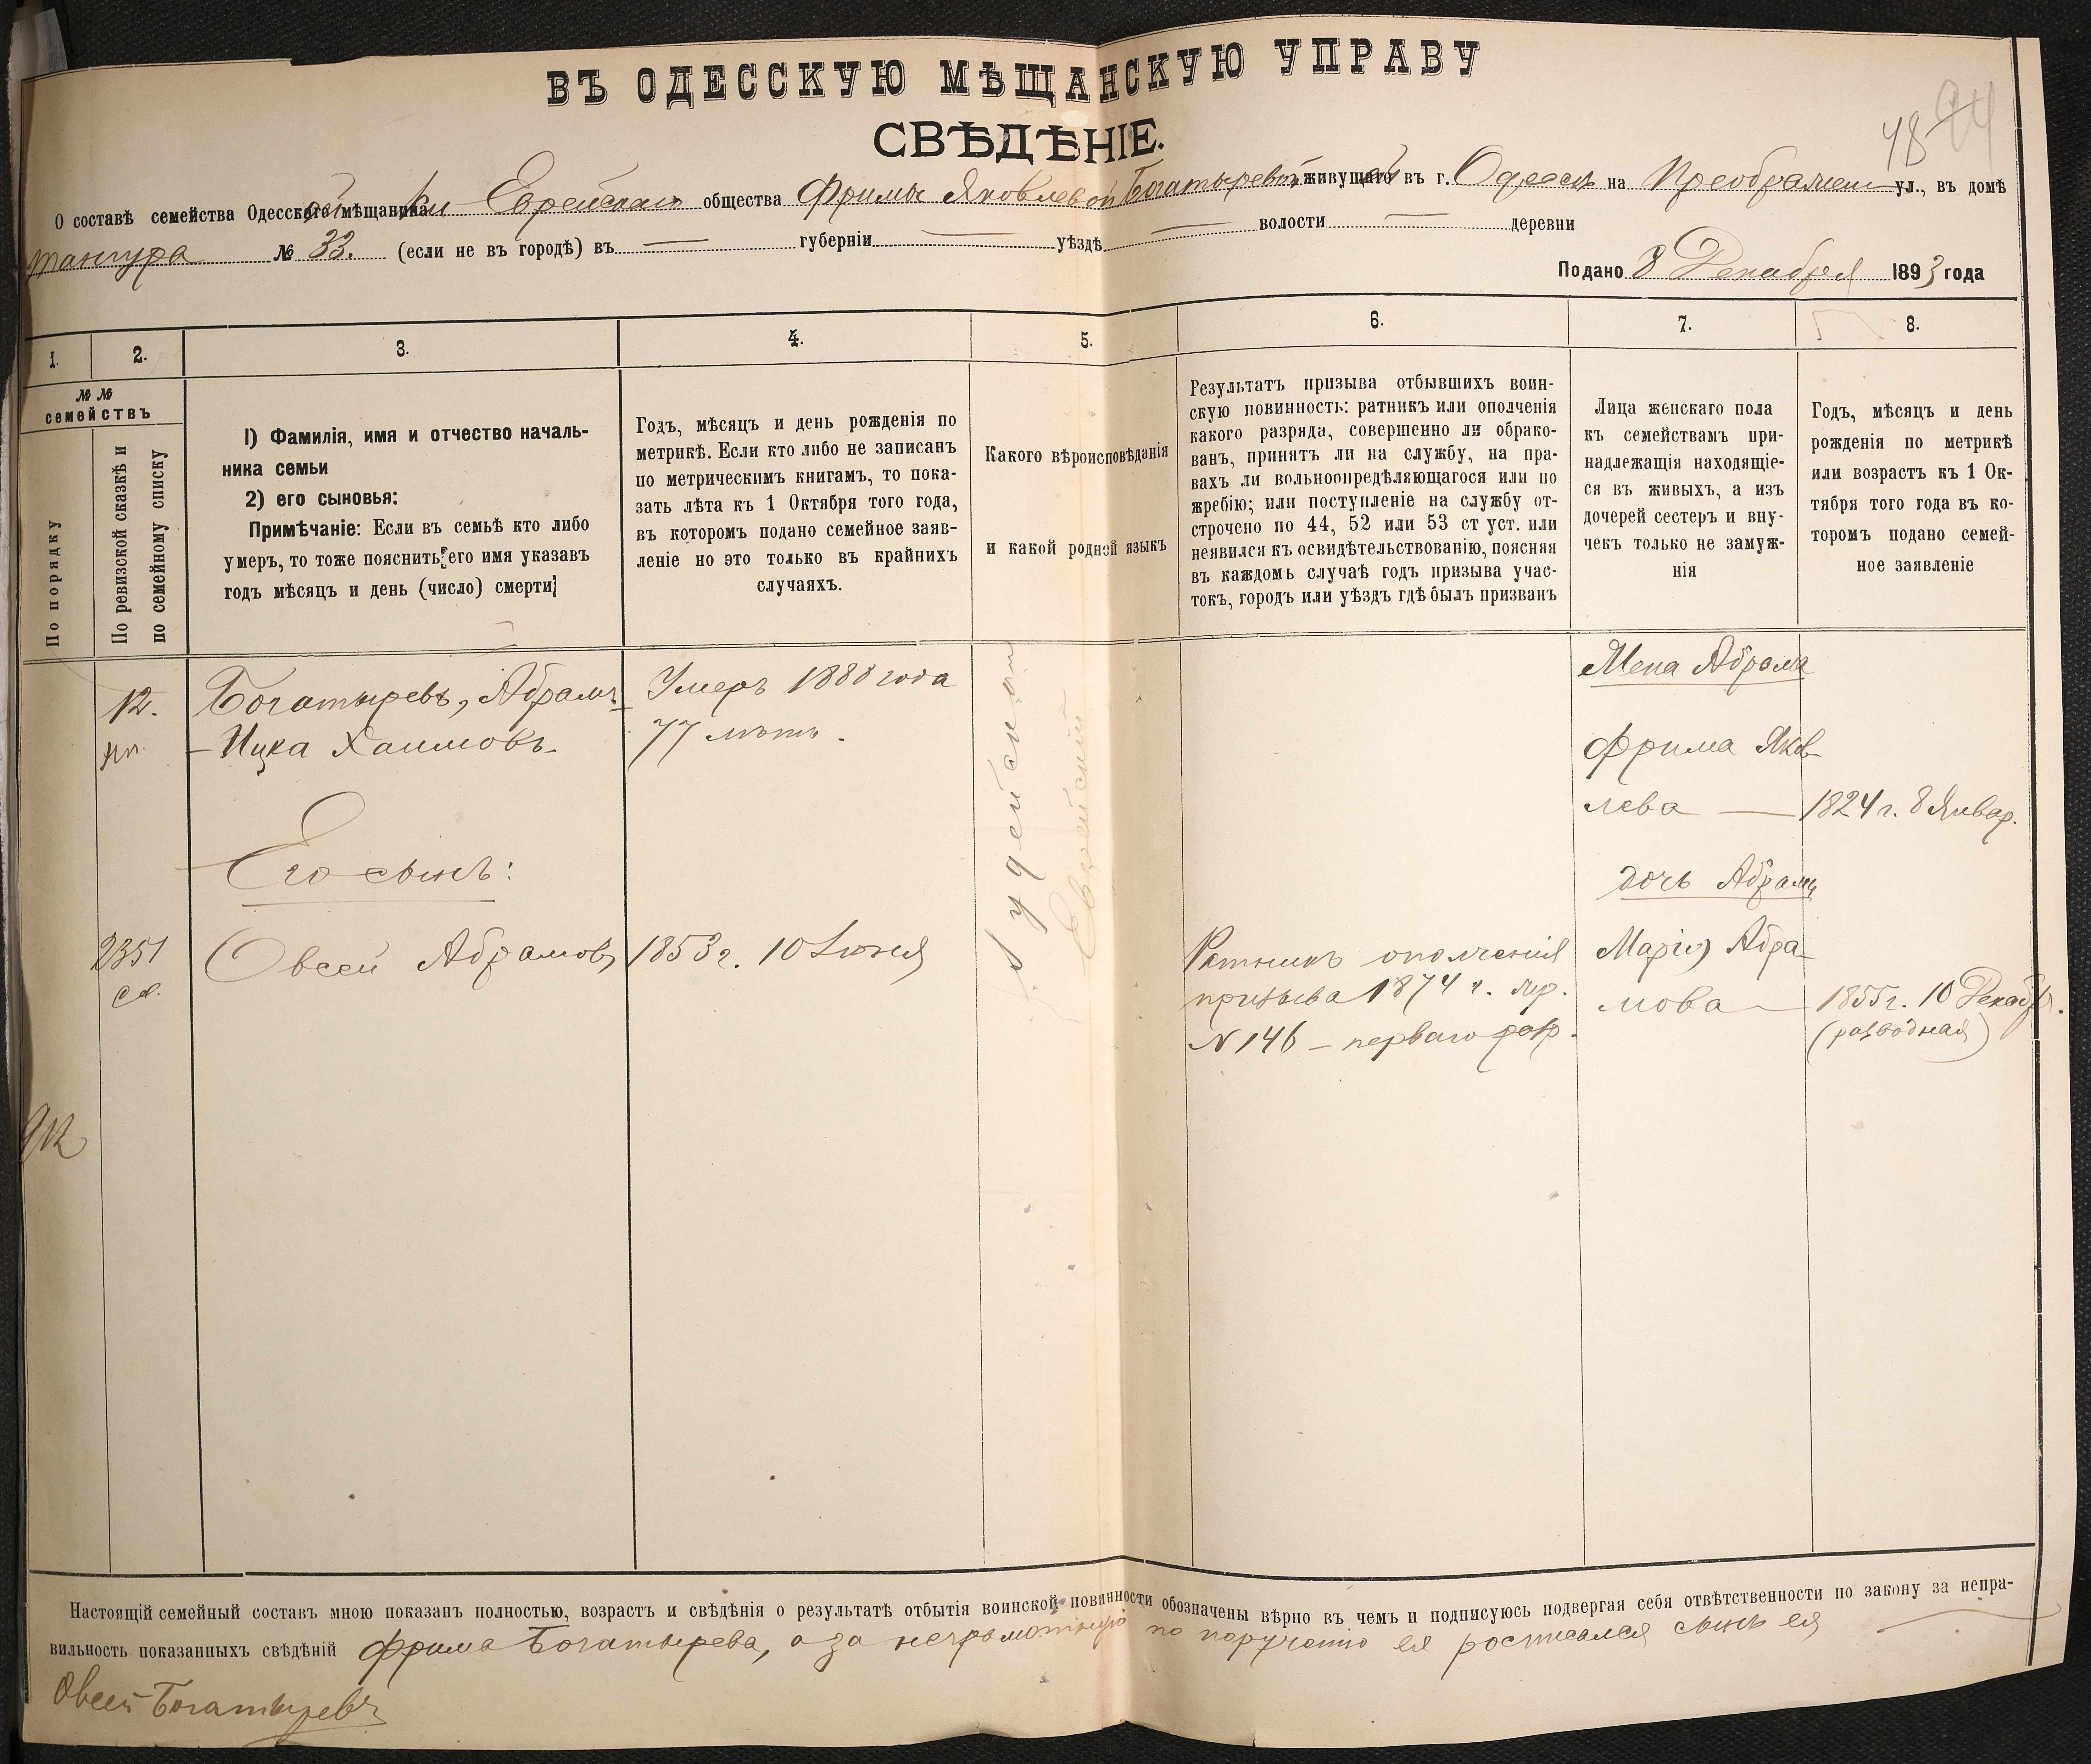 ВЪ ОДЕССКУЮ МѢЩАНСКУЮ УПРАВУ
СВѢДѢНІЕ.
48
О составѣ семейства Одесской мѣщанки Еврейскаго общества Фримы Яковлевой Богатыревой живущей въ г. Одессѣ на Преображен ул., въ домѣ
№ 33. (если не въ городѣ) въ — губерніи — уѣздѣ — волости — деревни
Подано 8 Декабря 1893 года
1. 2. 3. 4. 5. 6. 7. 8.
№ №
семействъ
По порядку
По ревизской сказкѣ и
по семейному списку
1) Фамилія, имя и отчество началь-
ника семьи
2) его сыновья:
Примѣчаніе: Если въ семьѣ кто либо
умеръ, то тоже пояснить его имя указавъ
годъ мѣсяцъ и день (число) смерти;
Годъ, мѣсяцъ и день рожденія по
метрикѣ. Если кто либо не записанъ
по метрическимъ книгамъ, то пока-
зать лѣта къ 1 Октября того года,
въ которомъ подано семейное заяв-
леніе но это только въ крайнихъ
случаяхъ.
Какого вѣроисповѣданія
и какой родной языкъ
Результатъ призыва отбывшихъ воин-
скую повинность: ратникъ или ополченія
какого разряда, совершенно ли обрако-
ванъ, принятъ ли на службу, на пра-
вахъ ли вольноопредѣляющагося или по
жребію; или поступленіе на службу от-
строчено по 44, 52 или 53 ст уст. или
неявился къ освидѣтельствованію, поясняя
въ каждомъ случаѣ годъ призыва учас-
токъ, городъ или уѣздъ гдѣ былъ призванъ
Лица женскаго пола
къ семействамъ при-
надлежащія находящіе-
ся въ живыхъ, а изъ
дочерей сестеръ и вну-
чекъ только не замуж-
нія
Годъ, мѣсяцъ и день
рожденія по метрикѣ
или возрастъ къ 1 Ок-
тября того года въ ко-
торомъ подано семей-
ное заявленіе
12.
Богатыревъ, Абрамъ
- Ицка Хаимовъ
Умеръ 1888 года
77 лѣтъ.
Іудейскаго
Еврейскій
Жена Абрама
Фрима Яков-
лева — 1824 г. 8 Январ.
Его сынъ:
дочь Абрама
2351
сп.
Овсей Абрамовъ
1853 г. 10 Іюня
Ратникъ ополченія
призыва 1874 г. жр.
N 146 - перваго разр.
Марія Абра-
мова — 1855 г. 10 Декабр.
(разводная)
912
Настоящій семейный составъ мною показанъ полностью, возрастъ и свѣдѣнія о результатѣ отбытія воинской повинности обозначены вѣрно въ чемъ и подписуюсь подвергая себя отвѣтственности по закону за непра-
вильность показанныхъ свѣдѣній Фрима Богатырева, а за неграмотную по порученію ея росписался сынъ ея
Овсей Богатыревъ